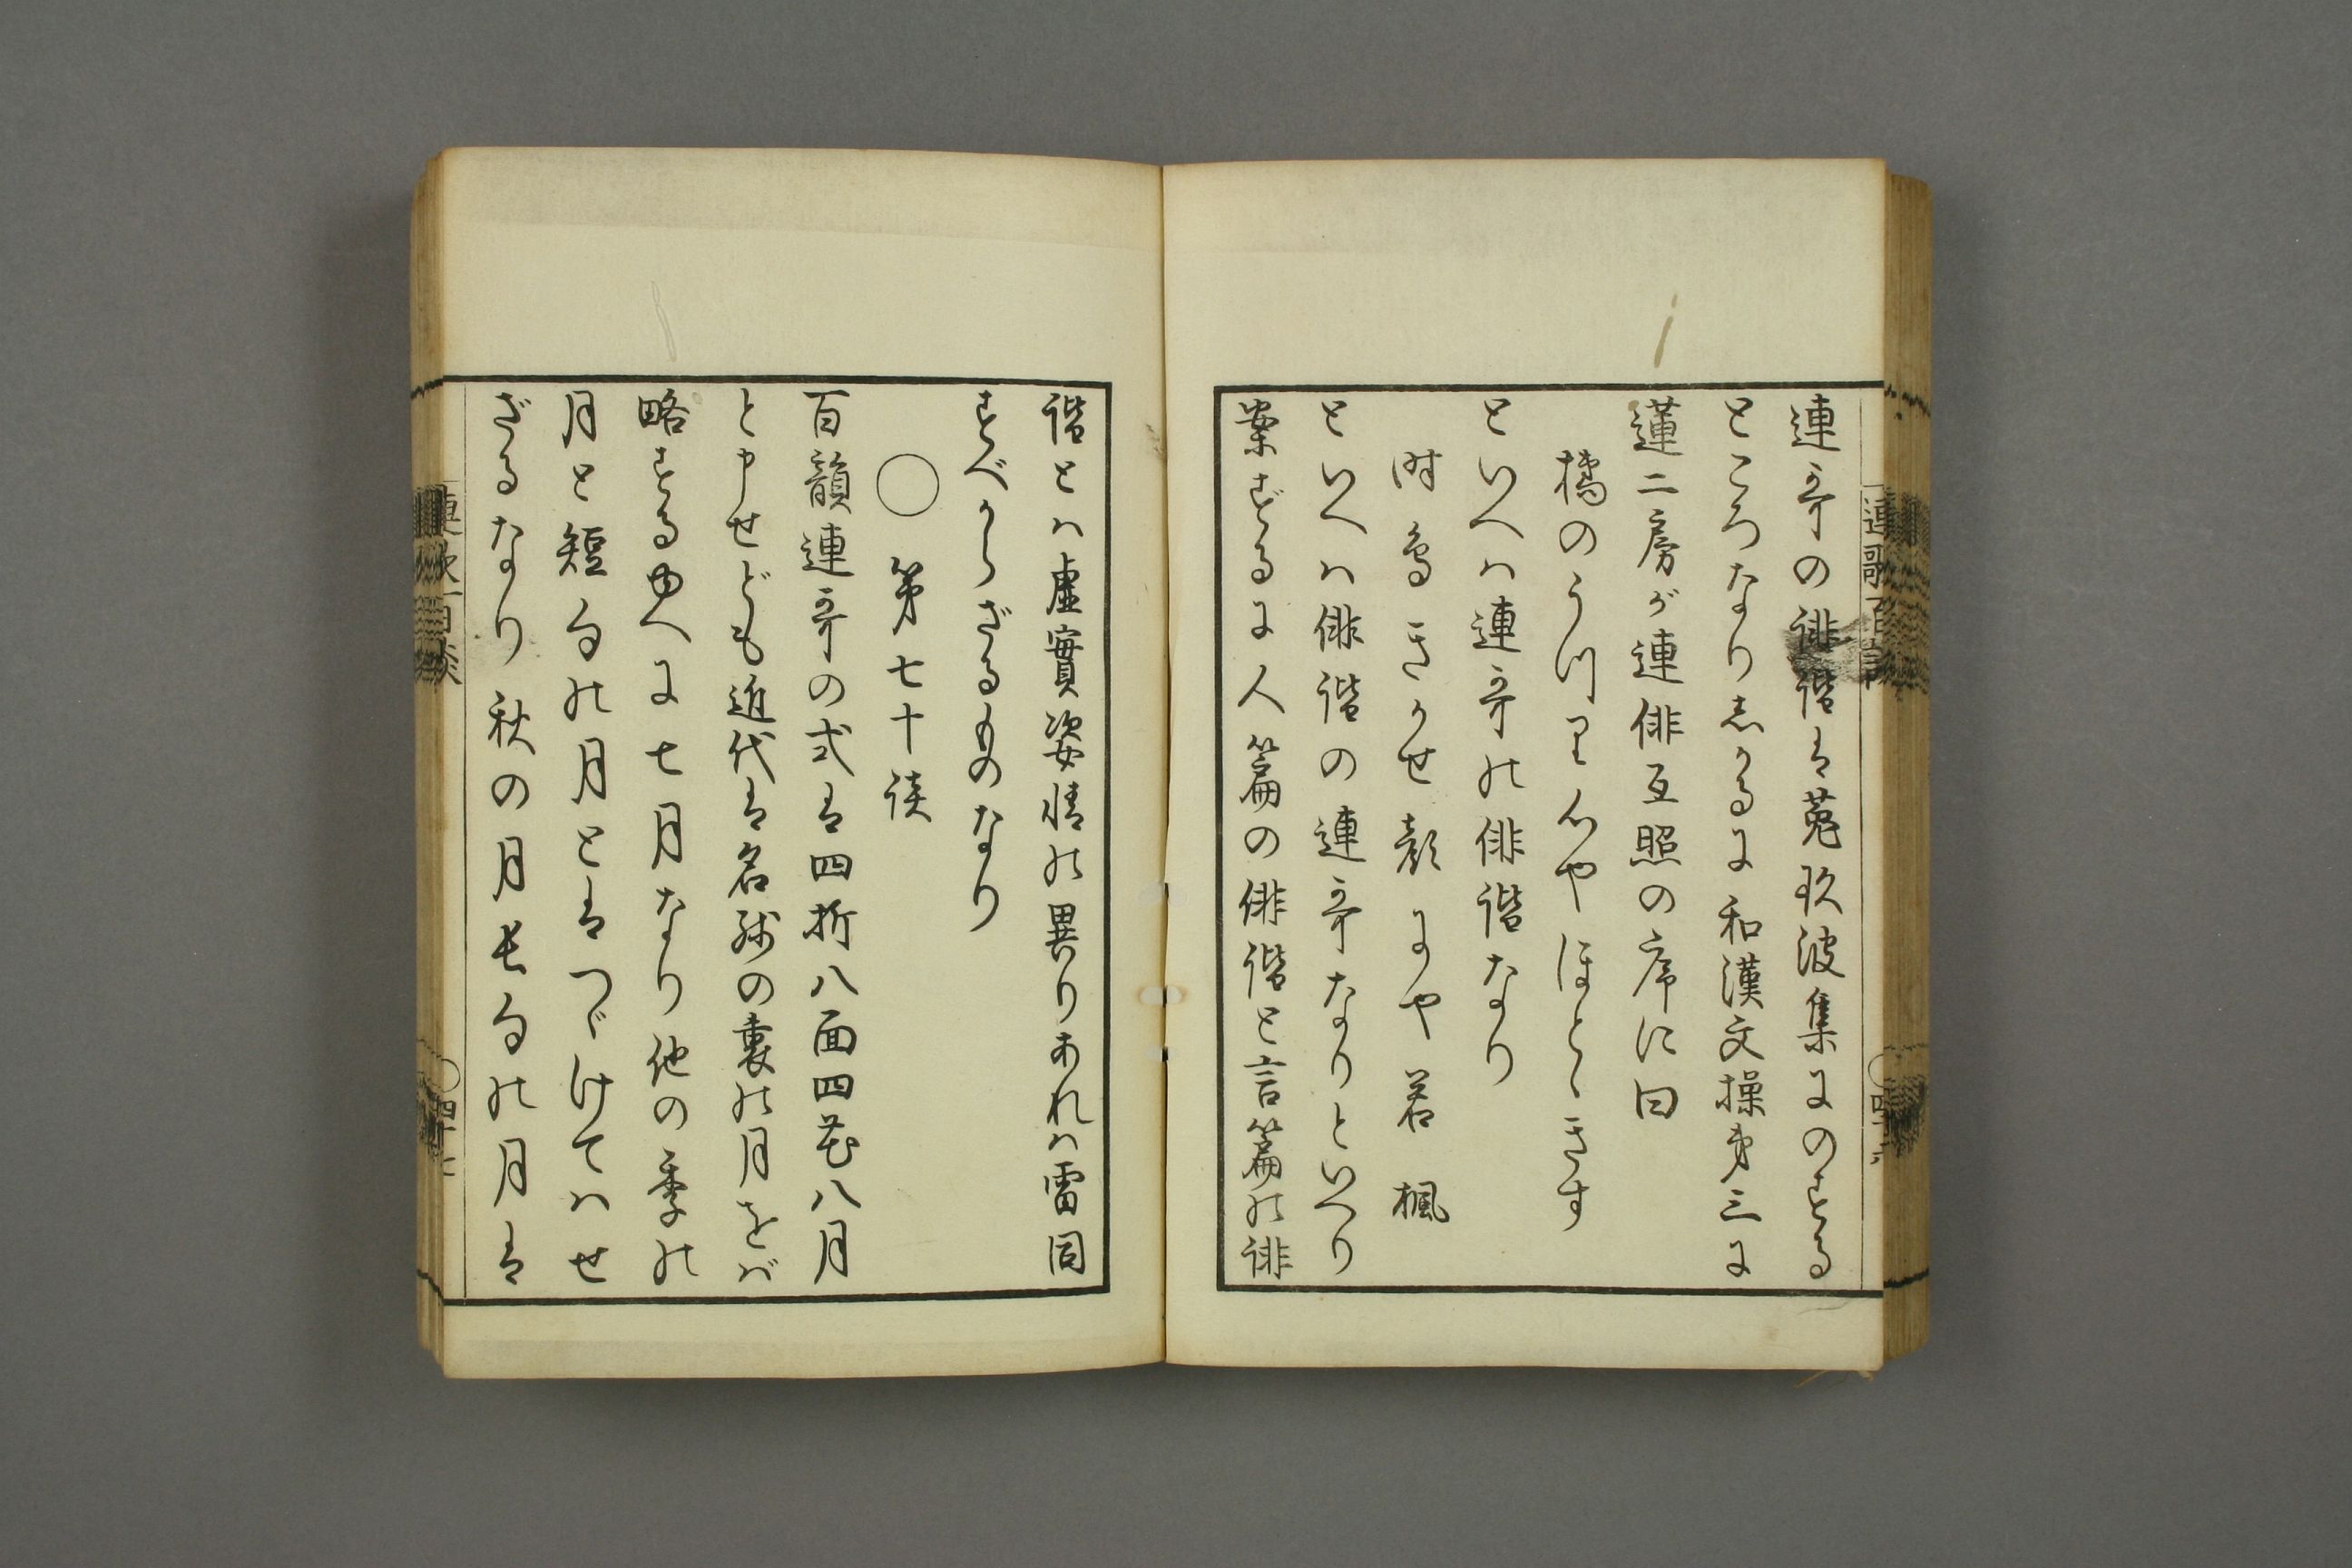 連哥の誹諧は菟玖波集にのする
ところなりしかるに和漢文操第三に
蓮二房が連俳互照の序に曰
橘のうつり心やほとゝきす
といへハ連哥の俳諧なり
時鳥きかせ顔にや若楓
といへハ俳諧の連哥なりといへり
案ずるに人篇の俳諧と言篇の誹
連歌百談
諧とハ虚實姿情の異りあれハ雷同
すべからざるものなり
○ 第七十談
百韻連哥の式は四折八面四花八月
と申せども近代は名残の裏の月をバ
略するゆへに七月なり他の季の
月と短句の月とはつゞけてハせ
ざるなり秋の月長句の月は
連歌百談
○四十七